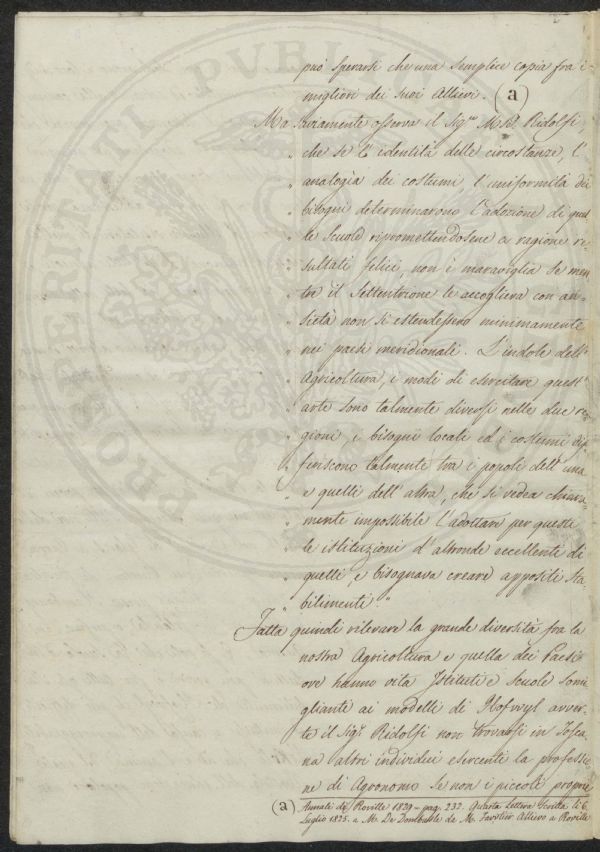 può sperarsi che una semplice copia fra i
migliori dei suoi Allievi. (a)
Ma saviamente osserva il Sigr. Mse. Ridolfi,
" che se l'identità delle circostanze, l'
" analogia dei costumi, l'uniformità dei
" bisogni determinarono l'adozione di quel
" le Scuole ripromettendosene a ragione re-
" sultati felici, non è maraviglia se men
" tre il Settentrione le accoglieva con an-
" sietà non si estendessero minimamente
" nei paesi meridionali. L'indole dell'
" Agricoltura, i modi di esercitare quest'
" arte sono talmente diversi nelle due re-
" gioni, i bisogni locali ed i costumi dif
" feriscono talmente tra i popoli dell'una
" e quelli dell'altra, che si vedea chiara-
" mente impossibile l'adottare per questi
" le istituzioni d'altronde eccellenti di
" quelli, e bisognava creare appositi sta-
" bilimenti "
Fatta quindi rilevare la grande diversità fra la
nostra Agricoltura e quella dei Paesi
ove hanno vita Istituti e Scuole somi
glianti ai modelli di Hofwyl avver-
te il Sigr. Ridolfi non trovarsi in Tosca
na altri individui esercenti la professio
ne di Agronomo se non i piccoli proprie
(a) Annali di Roville 1829 - pag. 232. Quarta Lettera scritta li 6
Luglio 1825. a M. De Dombasle da M. Allievo a Roville
PROSPERITATI PVBLI